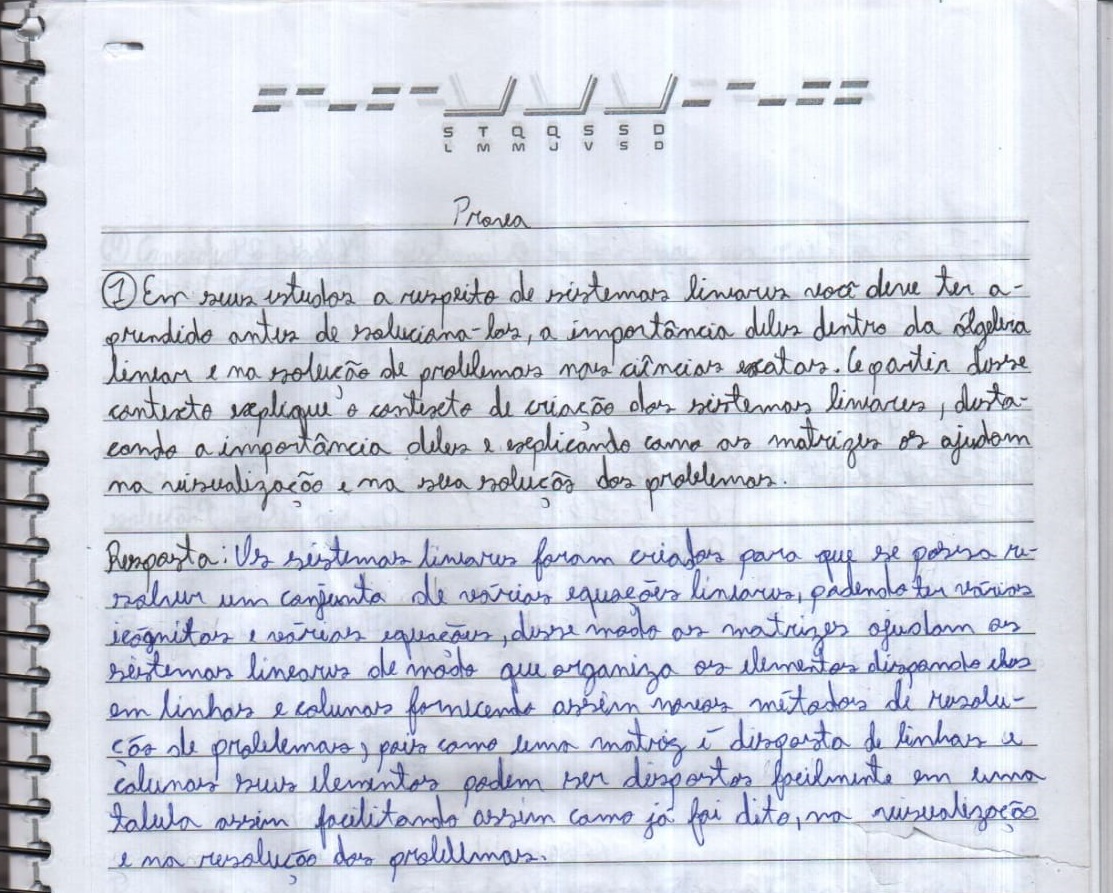 S T Q Q S S D
L M M J V S D
Prova
① Em seus estudos a respeito de sistemas lineares você deve ter a-
prendido antes de soluciona-los, a importância deles dentro da álgebra
linear e na solução de problemas nas ciências exatas. A partir desse
contexto explique o contexto de criação dos sistemas lineares, desta-
cando a importância deles e explicando como as matrizes os ajudam
na visualização e na sua solução dos problemas.
Resposta: Os sistemas lineares foram criados para que se possa re-
solver um conjunto de várias equações lineares, podendo ter várias
icógnitas e várias equações, desse modo as matrizes ajudam os
sistemas lineares de modo que organiza os elementos dispondo elos
em linhas e colunas fornicendo assim novos métodos de resolu-
ção de problemas, pois como uma matriz é disposta de linhas e
colunas seus elementos podem ser dispostos facilmente em uma
tabela assim facilitando assim como já foi dito, na visualização
e na resolução dos problemas.